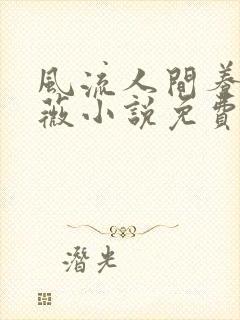 風流人間養
薇小說免費
潛光